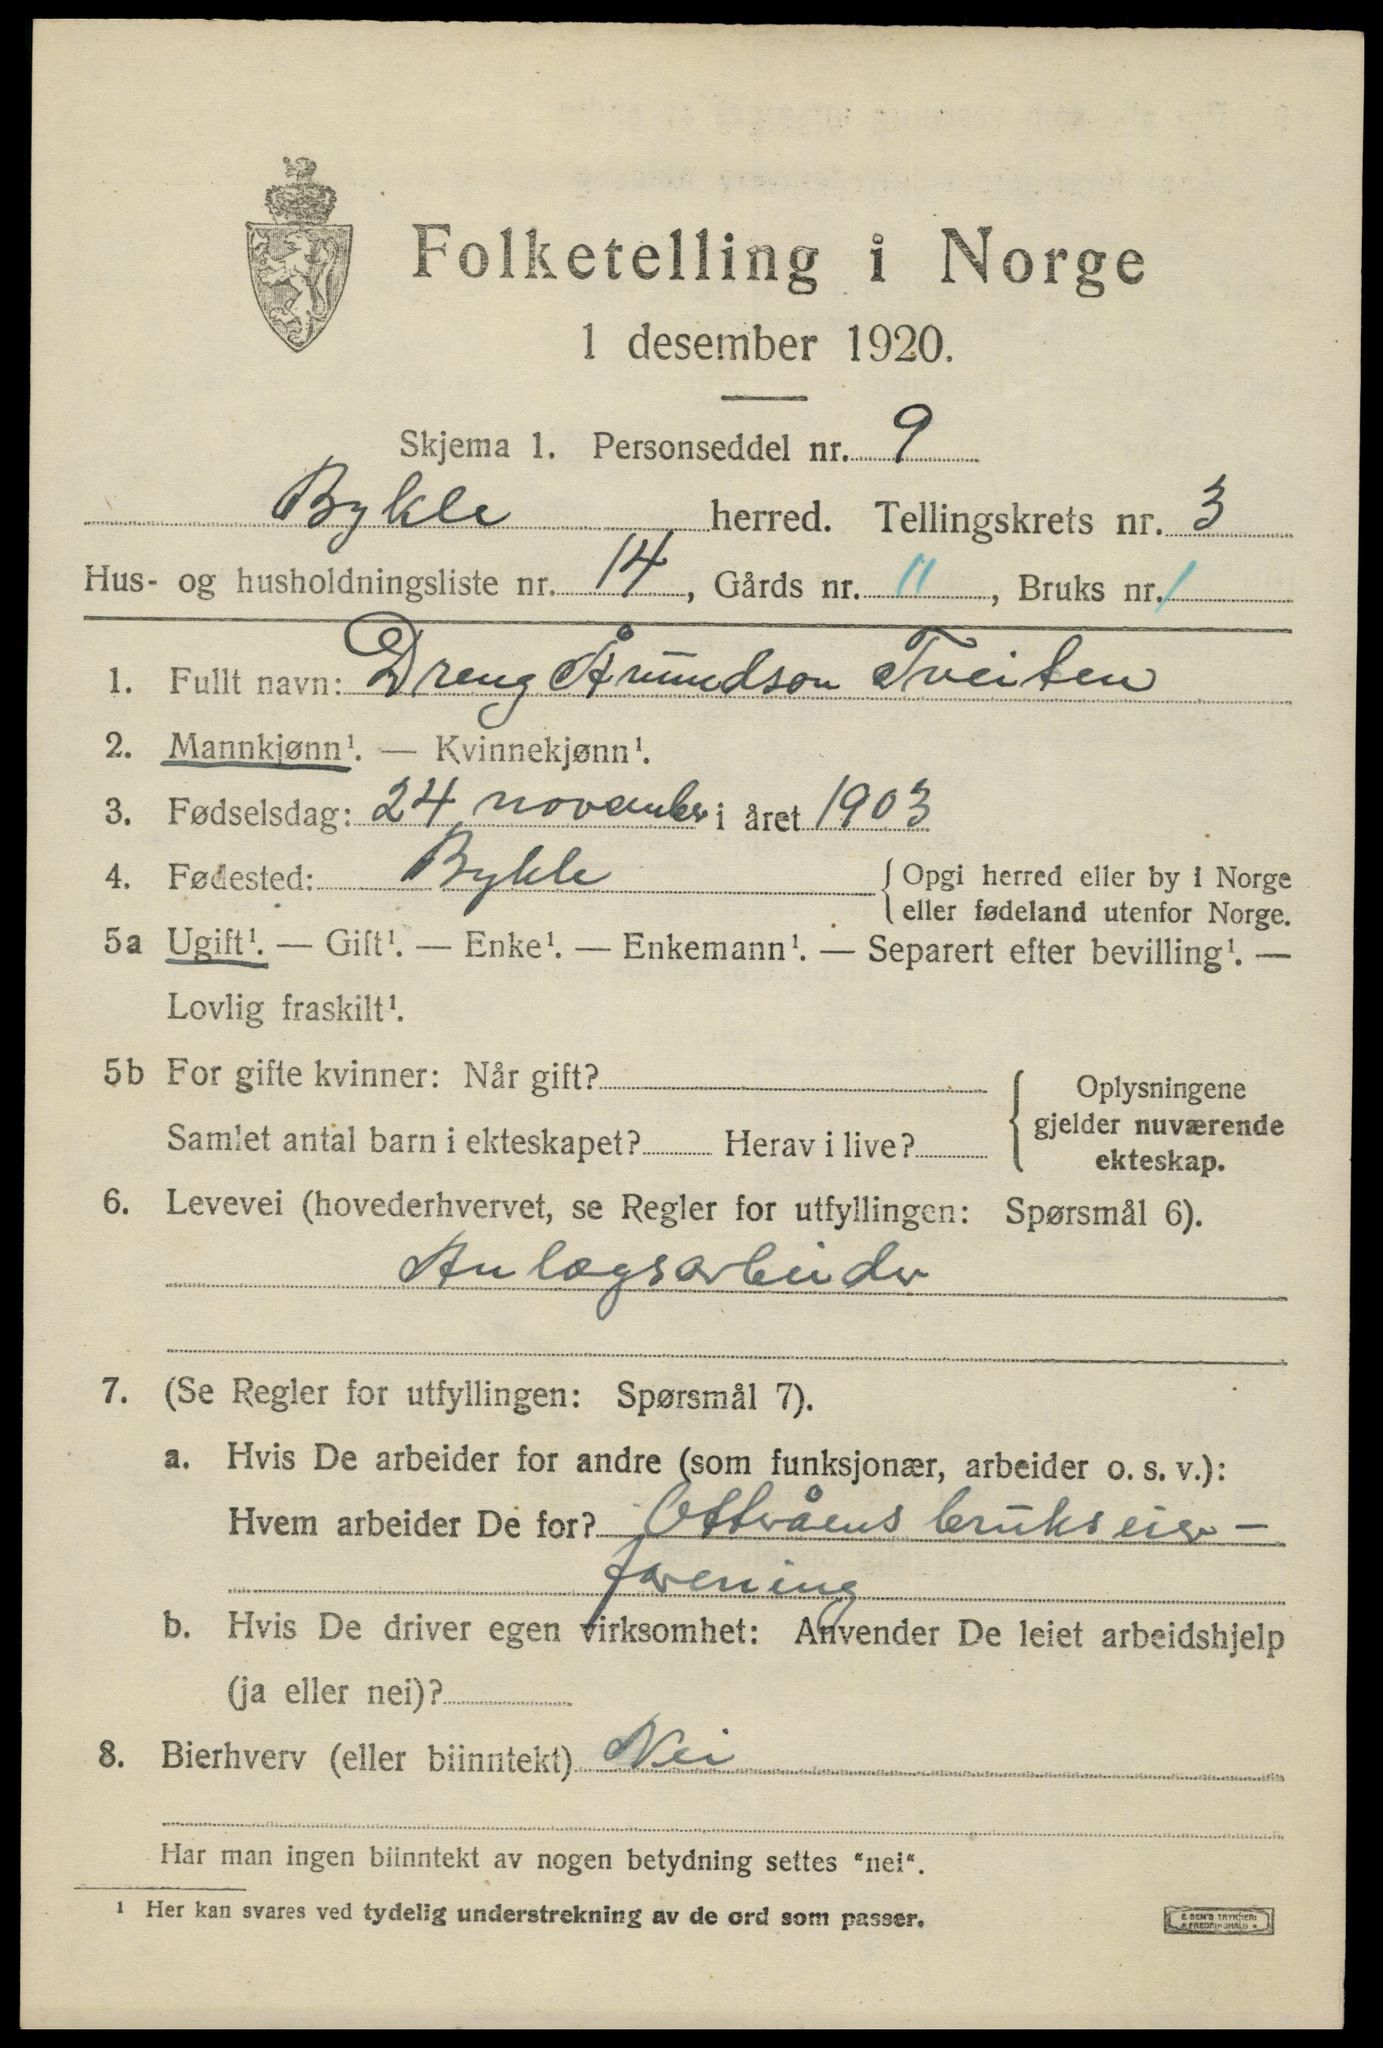 Folketelling i Norge
1 desember 1920.
Skjema 1. Personseddel nr. 9
Bykle herred. Tellingskrets nr. 3
Hus- og husholdningsliste nr. 14, Gårds nr. 11, Bruks nr. 1
1. Fullt navn: Dreng Åmundson Tveiten
2. Mannkjønn¹. — Kvinnekjønn¹.
3. Fødselsdag: 24 november i året 1903
4. Fødested: Bykle { Opgi herred eller by i Norge
eller fødeland utenfor Norge.
5a Ugift¹. — Gift¹. — Enke¹. — Enkemann¹. — Separert efter bevilling¹. —
Lovlig fraskilt¹.
5b For gifte kvinner: Når gift?
Samlet antal barn i ekteskapet? Herav i live?
{ Oplysningene
gjelder nuværende
ekteskap.
6. Levevei (hovederhvervet, se Regler for utfyllingen: Spørsmål 6).
Anlægsarbeider
7. (Se Regler for utfyllingen: Spørsmål 7).
a. Hvis De arbeider for andre (som funksjonær, arbeider o. s. v.):
Hvem arbeider De for? Otteråens brukseier-
forening
b. Hvis De driver egen virksomhet: Anvender De leiet arbeidshjelp
(ja eller nei)?
8. Bierhverv (eller biinntekt) Nei
Har man ingen biinntekt av nogen betydning settes "nei".
¹ Her kan svares ved tydelig understrekning av de ord som passer.
E SEM'S TRYKKERI
FREDRIKSHALD